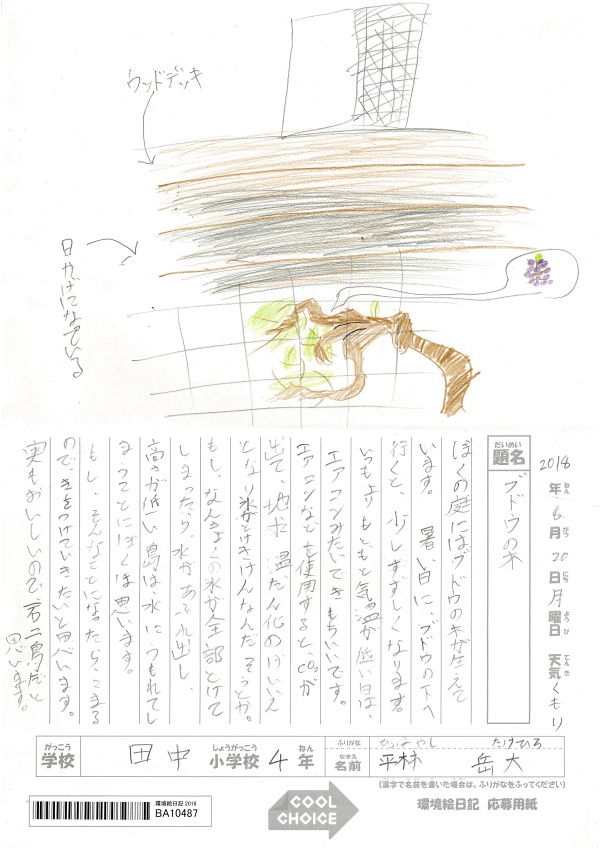 ウッドデッキ
日かげになっている
2018年6月20日月曜日 天気くもり
ねん がつ にち ようび てんき
だいめい
題名 ブドウの木
ぼくの庭にはブドウの木が生えて
います。暑い日に、ブドウの下へ
行くと、少しすずしくなります。
いつもよりもともと気温が低い日は、
エアコンみたいできもちいいです。
エアコンなどを使用すると、CO2が
出て、地球温だん化のげいいん
となり氷がとけきけんなんだ
もし、なんきょくの氷が全部とけて
しまったら、水があふれ出し、
高さが低い島は、水にうもれてし
まうことにぼくは思います。
もし、そんなことになったら、こまる
ので、きをつけていきたいと思います。
実もおいしいので、一石二鳥だと
思います。
がっこう しょうがっこう ねん ふりがな たけひろ
学校 田中 小学校 4年 なまえ 名前 平林 岳大
(漢字で名前を書いた場合は、ふりがなをふってください)
環境絵日記 2018
BA10487
COOL CHOICE
環境絵日記 応募用紙